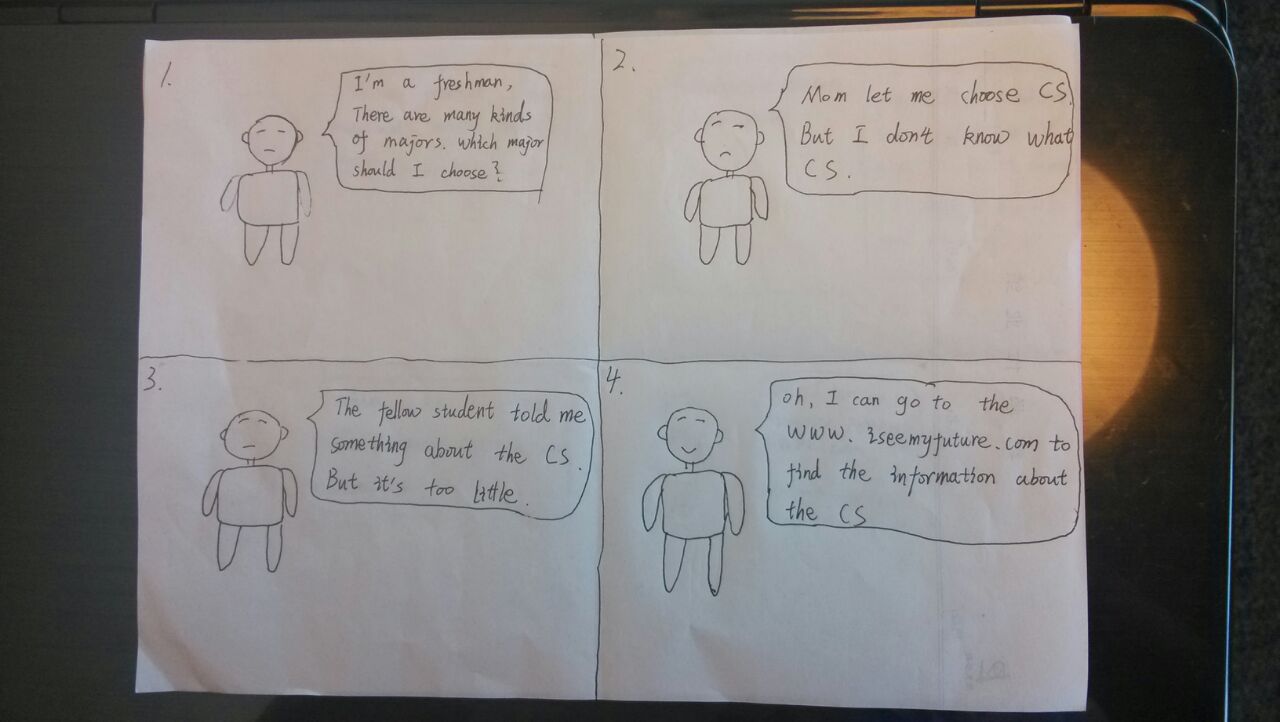 1.
I'm a freshman,
There are many kinds
of majors. which major
should I choose?
2.
Mom let me choose CS.
But I don't know what
CS.
3.
The fellow student told me
something about the CS.
But it's too little.
4.
oh, I can go to the
www. iseemyfuture.com to
find the information about
the CS